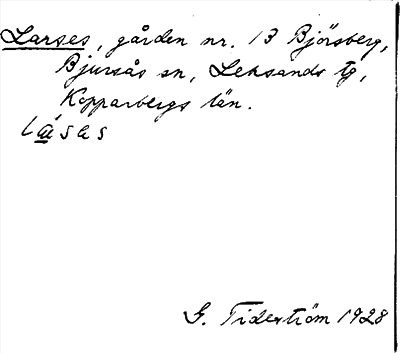 Larses, gården nr. 13 Björsberg,
Bjursås sn, Leksands tg,
Kopparbergs län.
lásas
G. Tiderström 1928